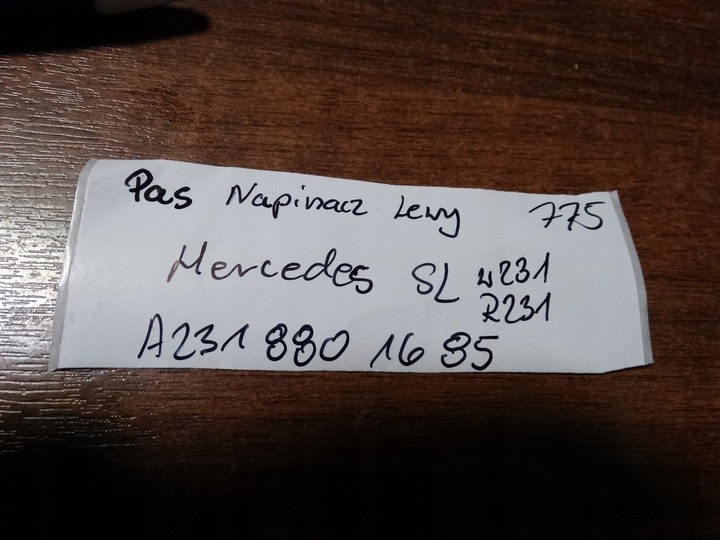 Pas Napinacz Lewy 775
Mercedes SL W231
R231
A231 880 16 85